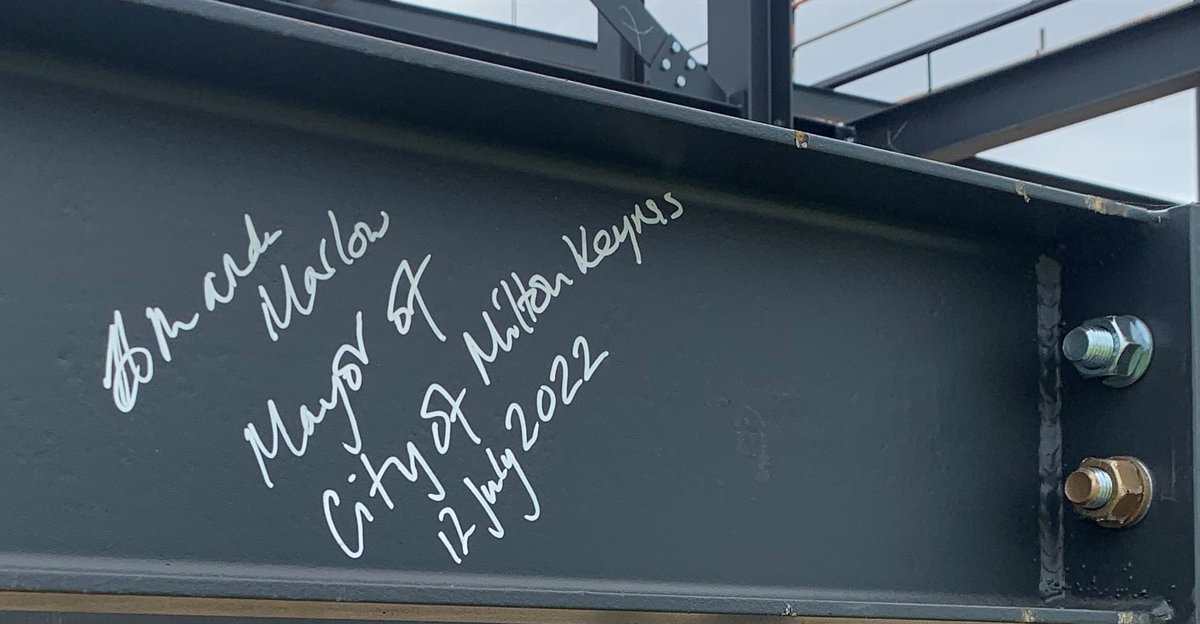 Amanda
Marlow
Mayor of
City of Milton Keynes
12 July 2022